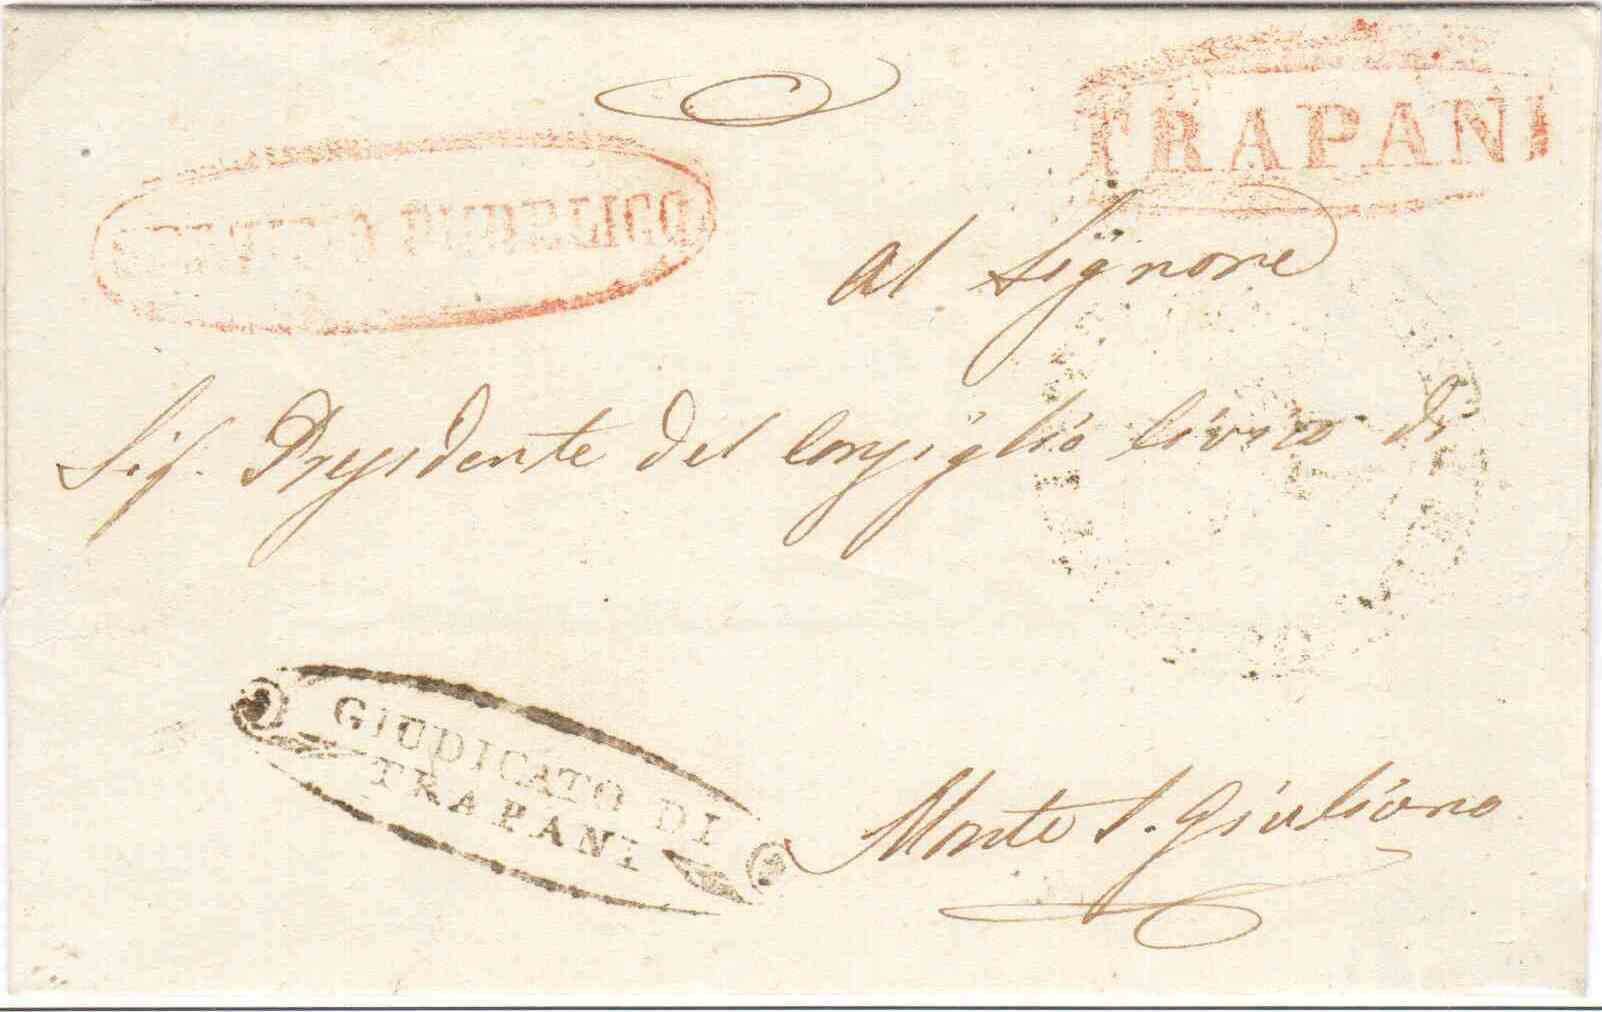 TRAPANI
PUBBLICO
Al Signore
Sig. Presidente del Consiglio Civico di
GIUDICATO DI
TRAPANI
Monte S. Giuliano